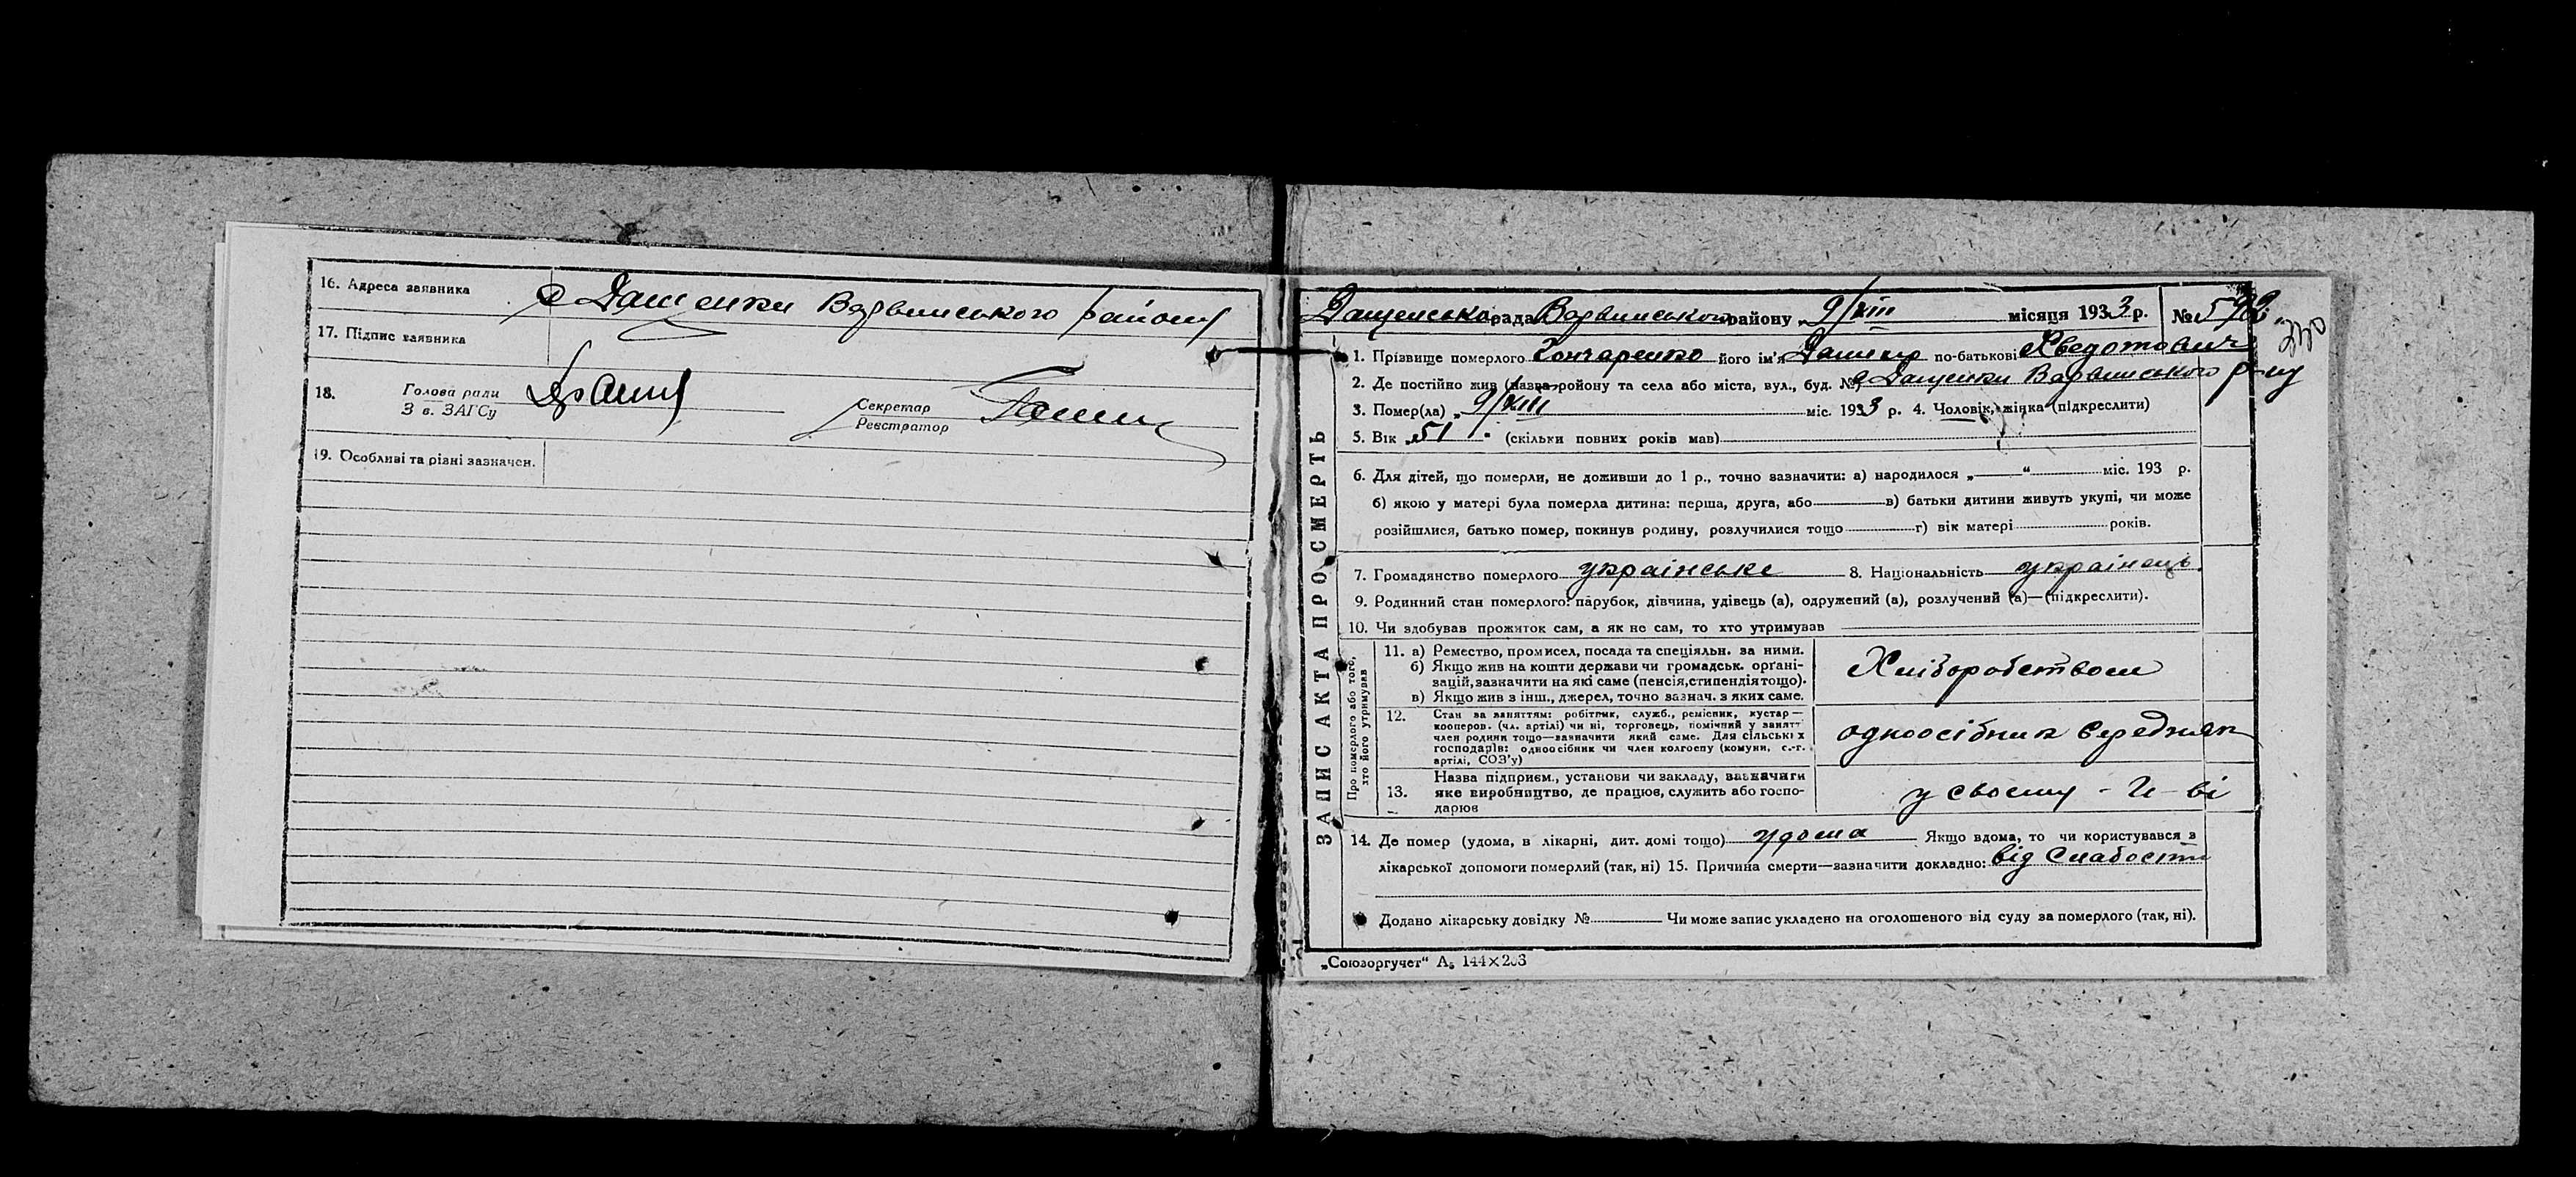 16. Адреса заявника с Дащенки Варвинського району
17. Підпис заявника
18. Голова ради
З в. ЗАГСу
Секретар
Реєстратор
19. Особливі та різні зазначен.
ЗАПИС АКТА ПРО СМЕРТЬ
Дащенсько рада Варвинського району 9/VIII місяця 1933 р. №
230
1. Прізвище померлого Гончаренко його ім'я Данило по-батькові Хведотович
2. Де постійно жив (назва району та села або міста, вул., буд. №) с Дащенки Варвинського р-ну
3. Помер(ла) „ 9/VIII міс. 1933 р. 4. Чоловік, жінка (підкреслити)
5. Вік „51" (скільки повних років мав)
6. Для дітей, що померли, не доживши до 1 р., точно зазначити: а) народилося „ “ міс. 193 р.
б) якою у матері була померла дитина: перша, друга, або в) батьки дитини живуть укупі, чи може
розійшлися, батько помер, покинув родину, розлучилися тощо г) вік матері років.
7. Громадянство померлого українське 8. Національність українець.
9. Родинний стан померлого: парубок, дівчина, удівець (а), одружений (а), розлучений (а)—(підкреслити).
10. Чи здобував прожиток сам, а як не сам, то хто утримував
Про померлого або того, хто його утримував
11. а) Ремество, промисел, посада та спеціяльн. за ними.
б) Якщо жив на кошти держави чи громадськ. органі-
зацій, зазначити на які саме (пенсія, стипендія тощо).
в) Якщо жив з інш., джерел, точно зазнач. з яких саме.
Хліборобством
12. Стан за заняттям: робітник, служб., ремісник, кустар—
кооперов. (чл. артілі) чи ні, торговець, помічний у занятт
член родини тощо—зазначити який саме. Для сільських
господарів: одноосібник чи член колгоспу (комуни, с.-г.
артілі, СОЗ'у)
одноосібник середняк
13. Назва підприєм., установи чи закладу, зазначити
яке виробництво, де працює, служить або госпо-
дарює
у своєму - г-ві
14. Де помер (удома, в лікарні, дит. домі тощо) удома Якщо вдома, то чи користувався з
лікарської допомоги померлий (так, ні) 15. Причина смерти—зазначити докладно: від слабости
Додано лікарську довідку № Чи може запис укладено на оголошеного від суду за померлого (так, ні).
„Союзоргучет“ А5 144×203